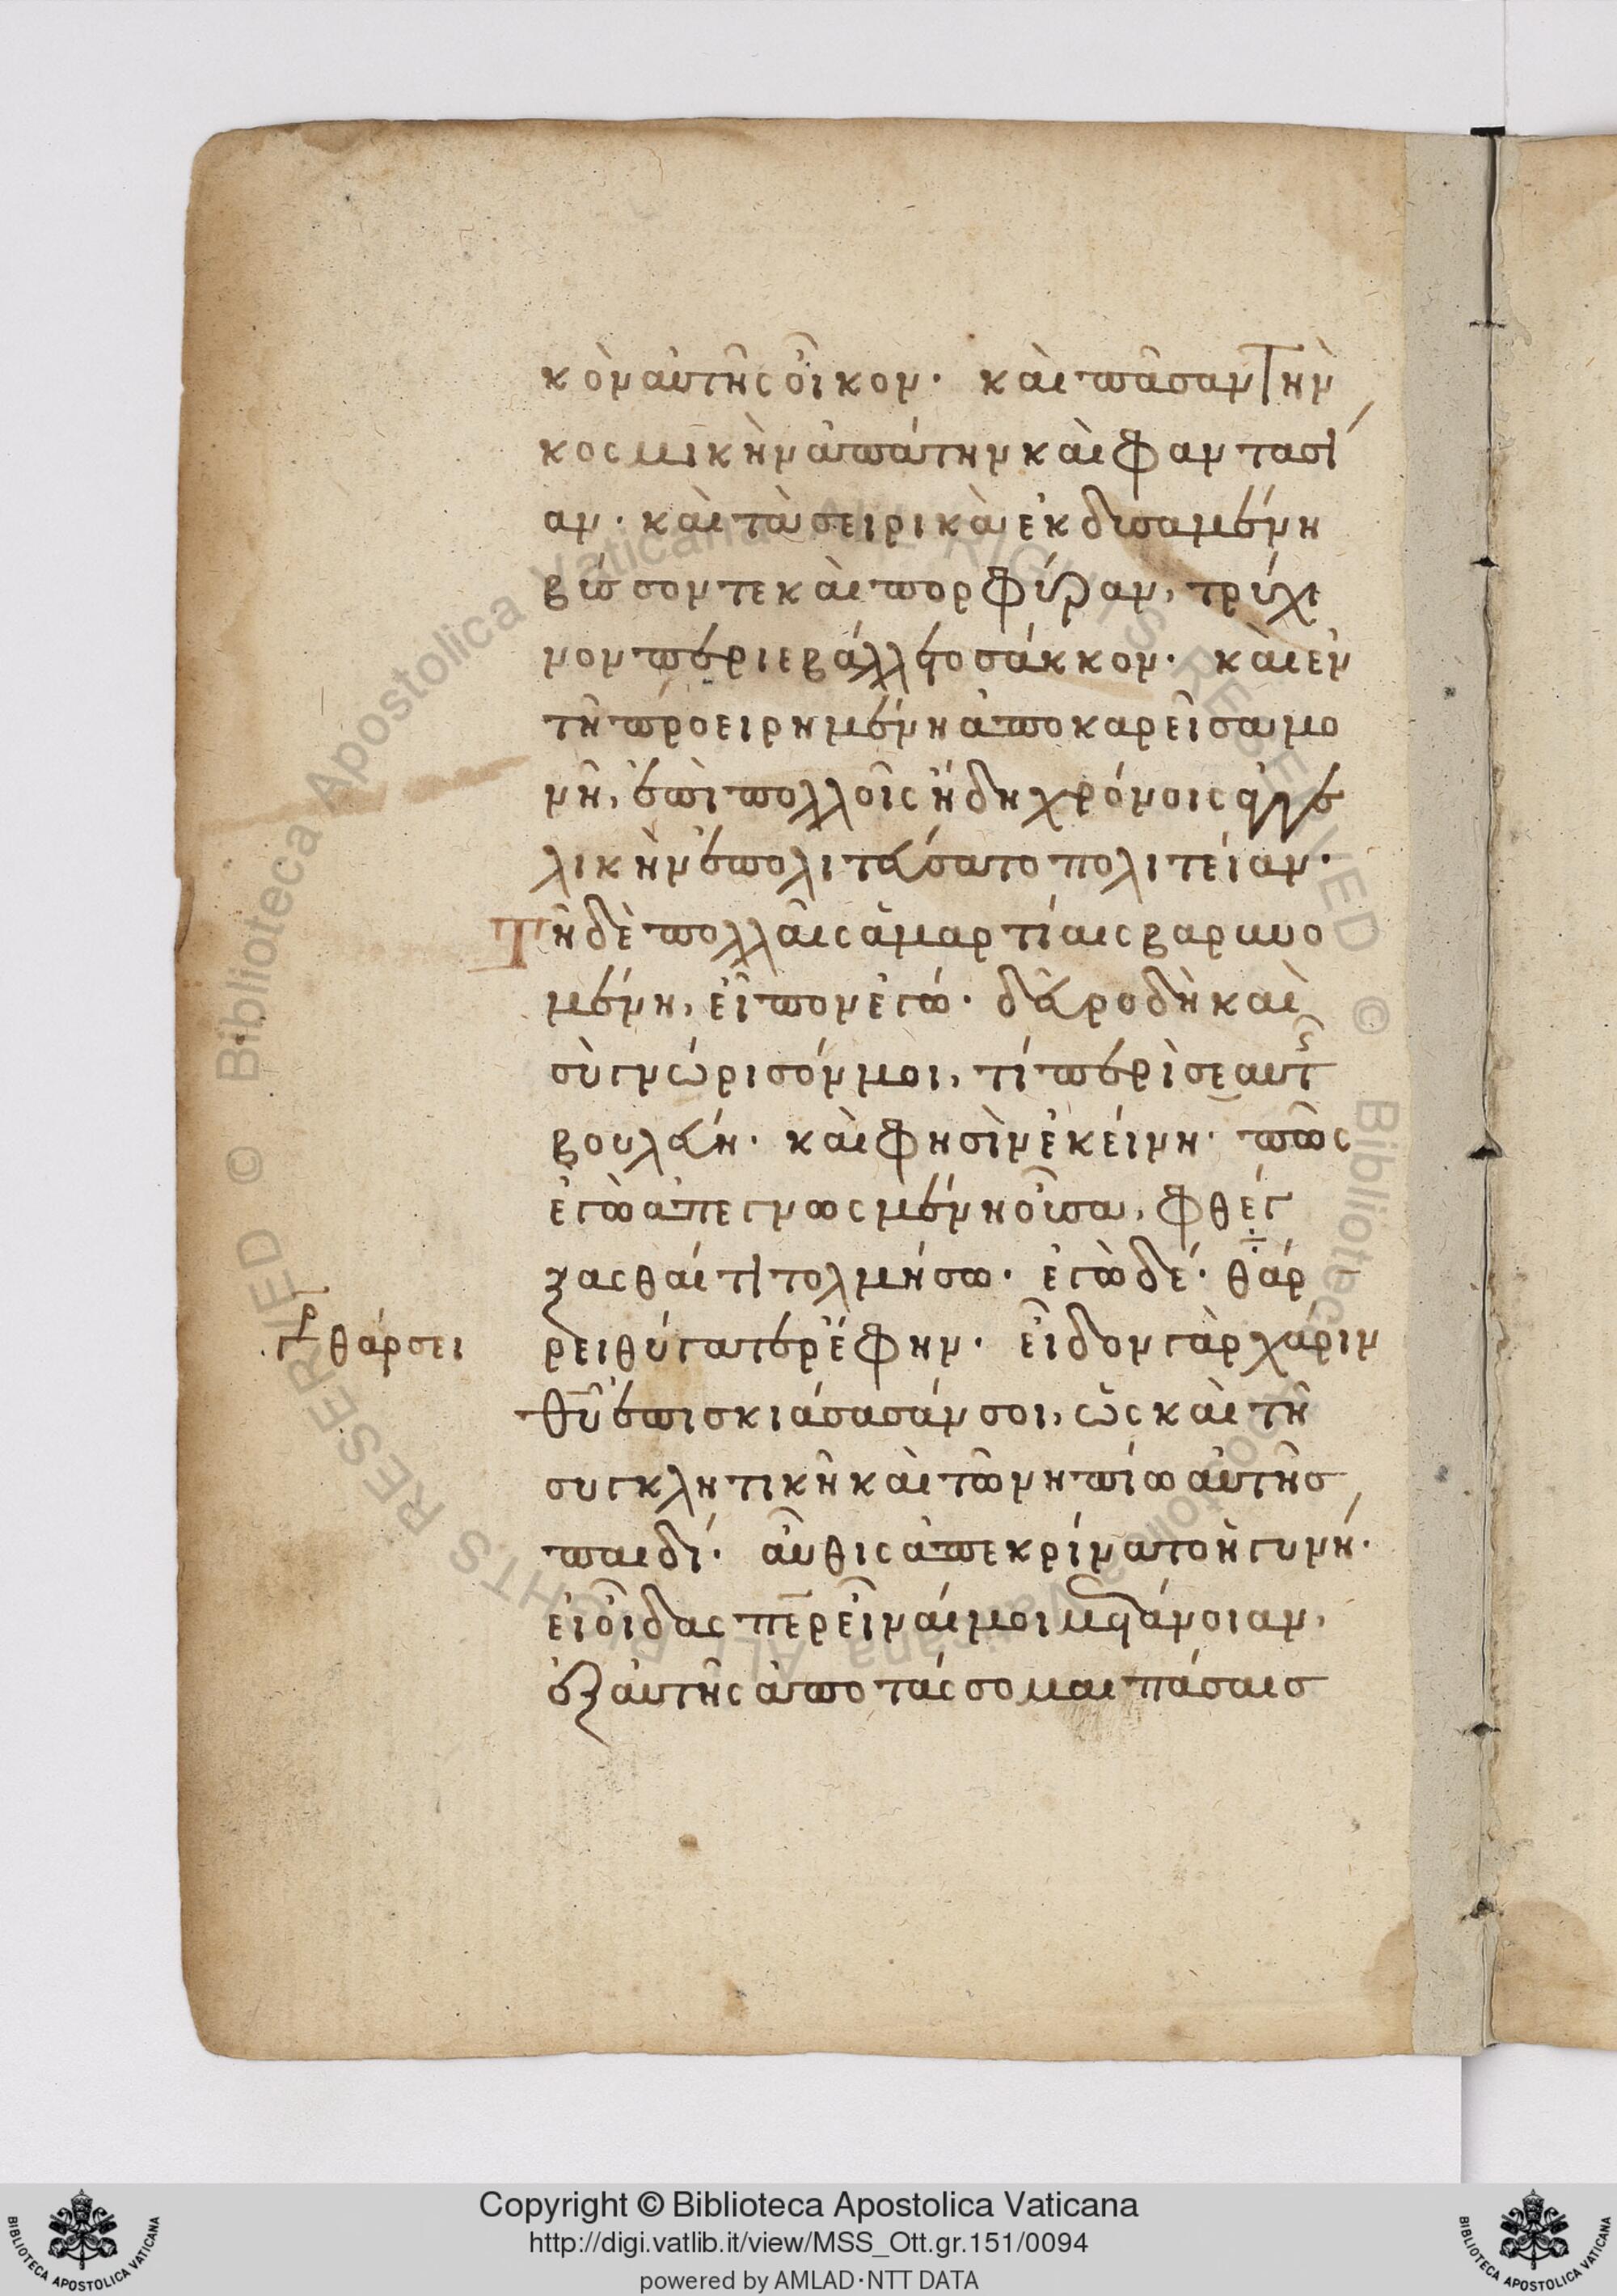 κὸν αὐτῆς οἶκον· καὶ πᾶσαν τὴν
κοσμικὴν ἀπάτην καὶ φαντασί
αν· καὶ τὰ σειρικὰ ἐκδυσαμένη
βύσσον τε καὶ πορφύραν, τρύχι
νον περιεβάλλετο σάκκον· καὶ ἐν
τῆ προειρημένη ἀποκαρεῖσα μο
νῆ, ἐπὶ πολλοῖς ἤδη χρόνοις ἀγγε
λικὴν ἐπολιτεύσατο πολιτείαν·
Τῆ δὲ πολλαῖς ἁμαρτίαις βαρυνο
μένη, εἶπον ἐγώ· δεῦρο δὴ καὶ
σὺ γνώρισόν μοι, τί περὶ σεαυτῆς
βουλεύη· καὶ φησὶν ἐκείνη· πῶς
ἐγὼ ἀπεγνωσμένη οὖσα, φθέγ
ξασθαί τι τολμήσω· ἐγὼ δέ· θάρ
γρ θάρσει
ρει θύγατερ ἔφην· εἶδον γὰρ χάριν
θυ ἐπισκιάσασάν σοι, ὡς καὶ τῆ
συγκλητικῆ καὶ τῶ νηπίω αὐτῆς
παιδί· αὖθις ἀπεκρίνατο ἡ γυνή·
εἰ οἶδας περ εἶναί μοι μετάνοιαν,
ἐξ αὐτῆς ἀποτάσσομαι πάσαις
Copyright © Biblioteca Apostolica Vaticana
http://digi.vatlib.it/view/MSS_Ott.gr.151/0094
powered by AMLAD·NTT DATA
BIBLIOTECA APOSTOLICA VATICANA
BIBLIOTECA APOSTOLICA VATICANA